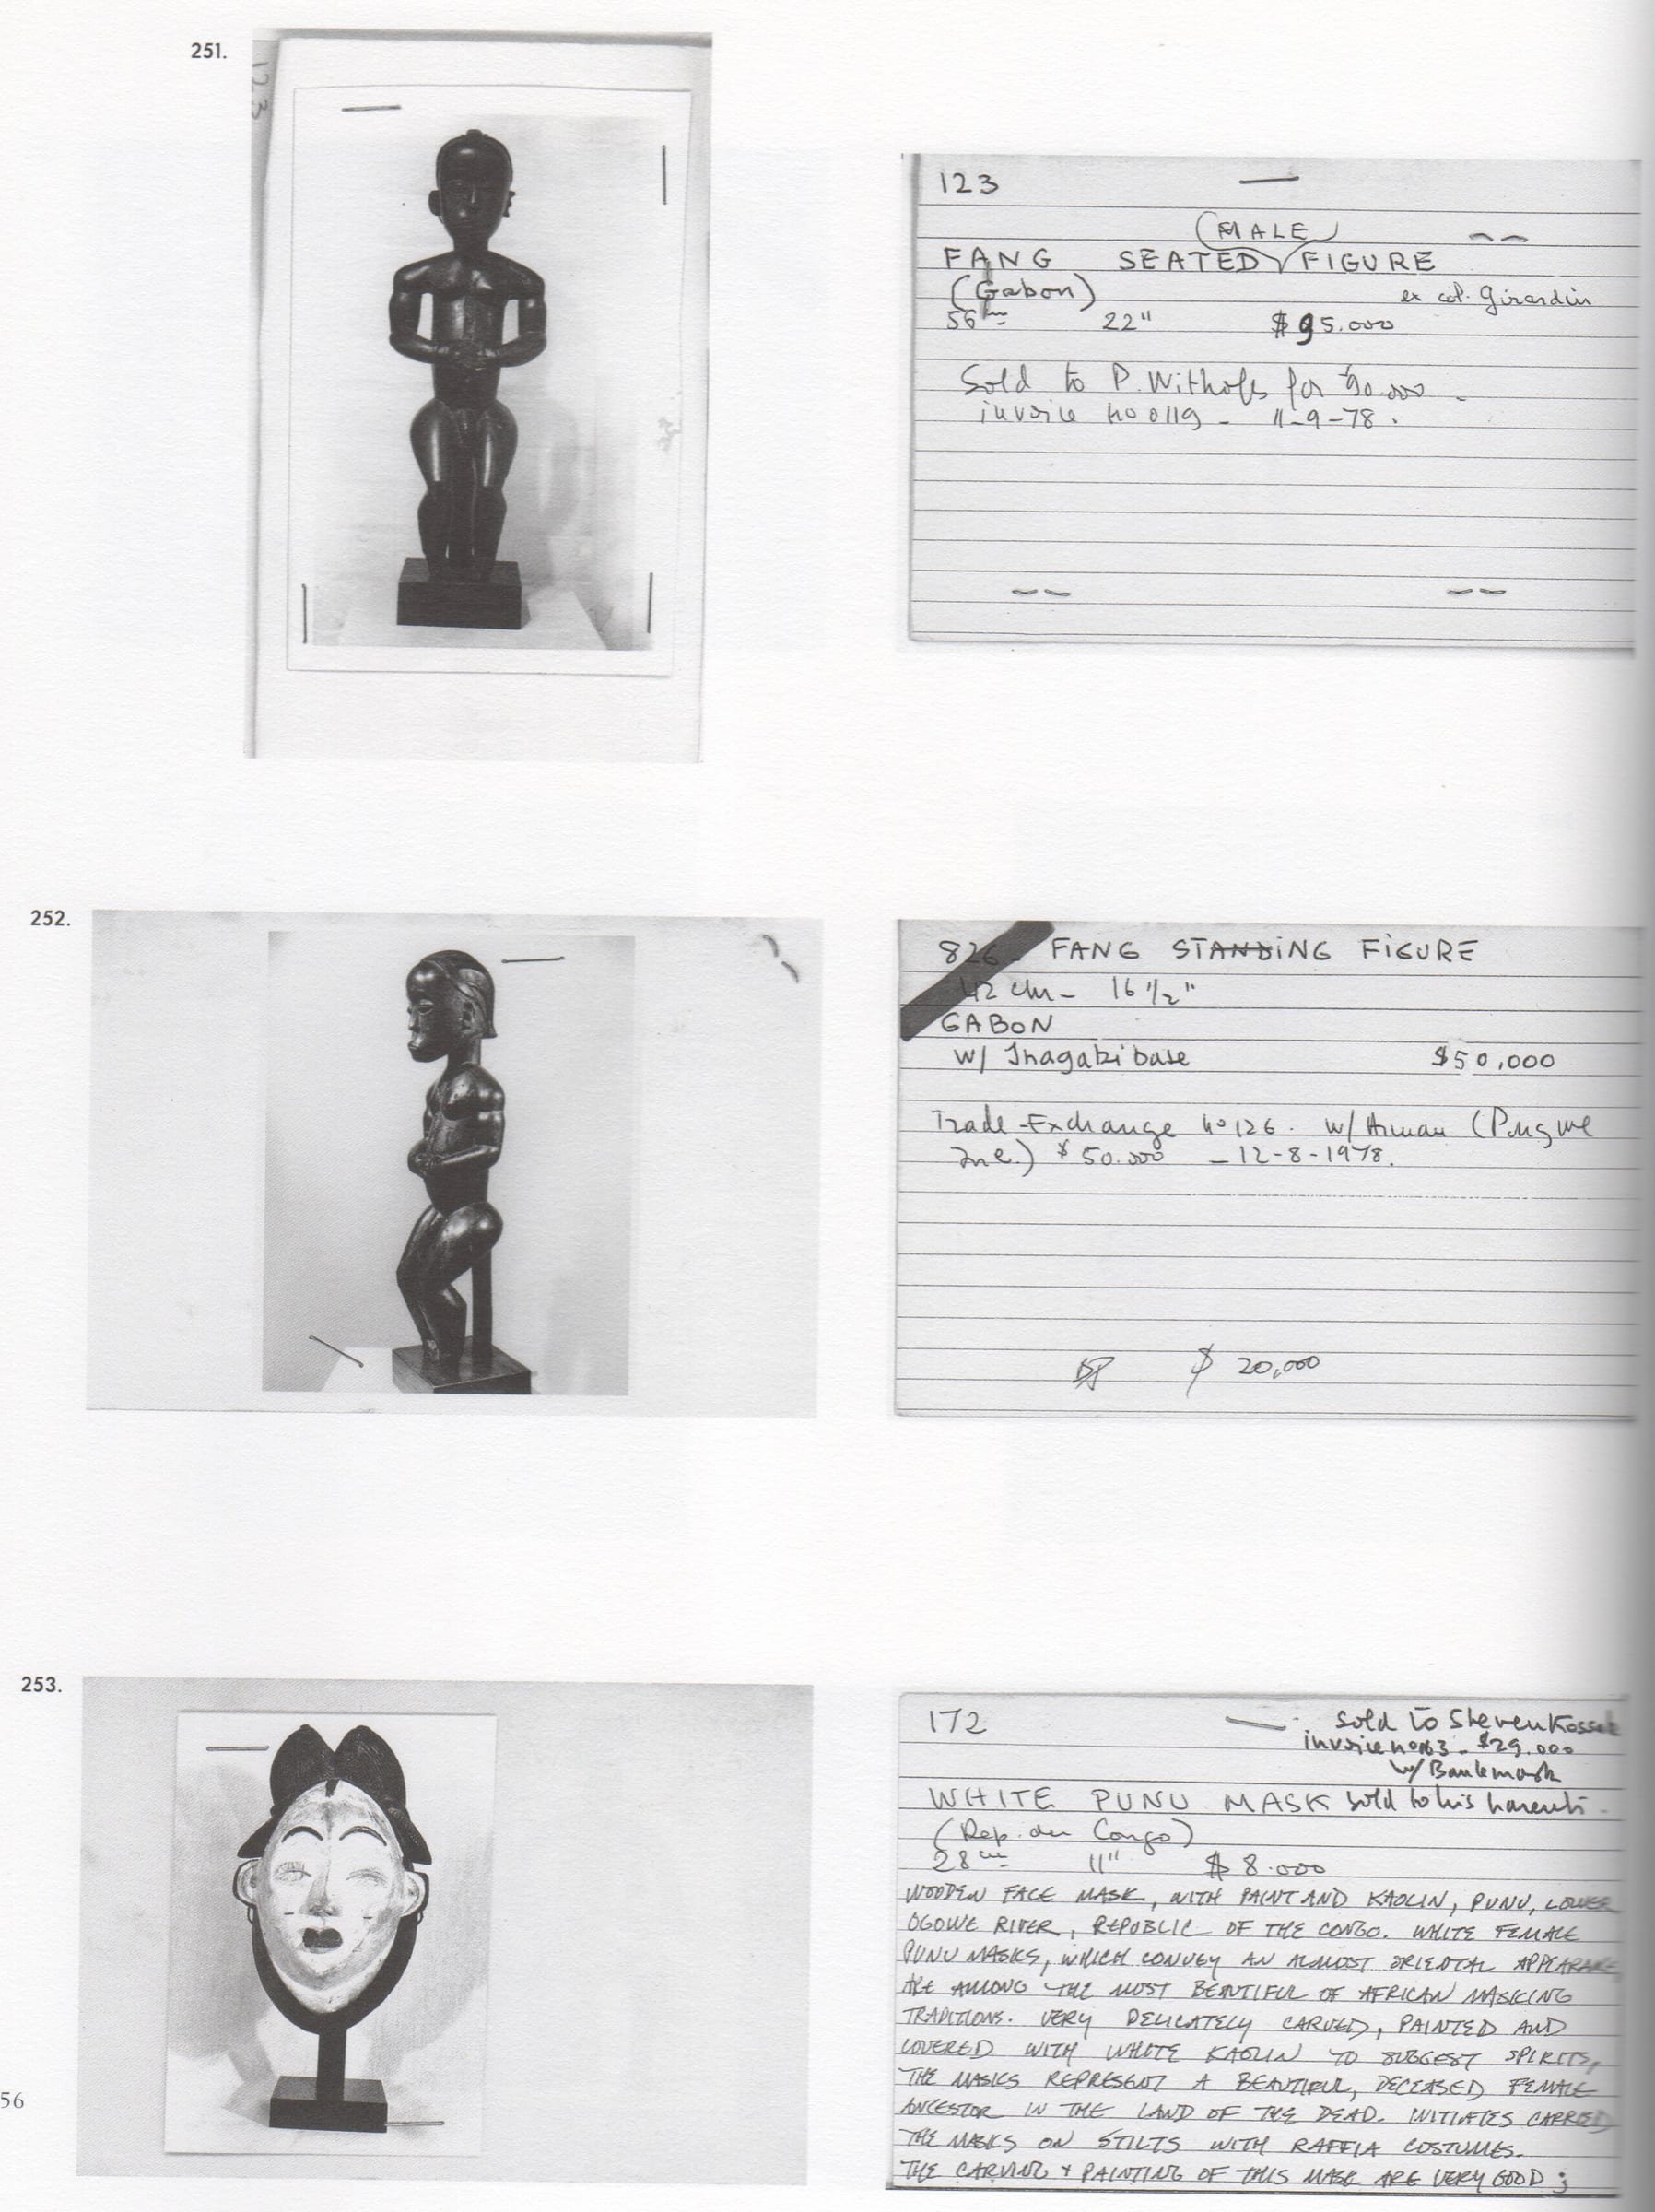 251.
123
123
(MALE)
FANG SEATED FIGURE
(Gabon) ex col. Girardin
56 cm 22" $95.000
Sold to P. Withofs for $90.000 -
invoice no 0119 - 11-9-78.
252.
826. FANG STANDING FIGURE
42 cm - 16 1/2"
GABON
w/ Inagaki base $50,000
Trade-Exchange no 126. w/ Arman (
Inc.) $50.000 - 12-8-1978.
$ 20,000
253.
172 sold to Steven Kossak
invoice no 163 - $29.000
w/ Baule mask
WHITE PUNU MASK sold to his parents -
(Rep. du Congo)
28 cm 11" $ 8.000
WOODEN FACE MASK, WITH PAINT AND KAOLIN, PUNU, LOWER
OGOWE RIVER, REPUBLIC OF THE CONGO. WHITE FEMALE
PUNU MASKS, WHICH CONVEY AN ALMOST ORIENTAL APPEARANCE,
ARE AMONG THE MOST BEAUTIFUL OF AFRICAN MASKING
TRADITIONS. VERY DELICATELY CARVED, PAINTED AND
COVERED WITH WHITE KAOLIN TO SUGGEST SPIRITS,
THE MASKS REPRESENT A BEAUTIFUL, DECEASED FEMALE
ANCESTOR IN THE LAND OF THE DEAD. INITIATES CARRIED
THE MASKS ON STILTS WITH RAFFIA COSTUMES.
THE CARVING + PAINTING OF THIS MASK ARE VERY GOOD;
56